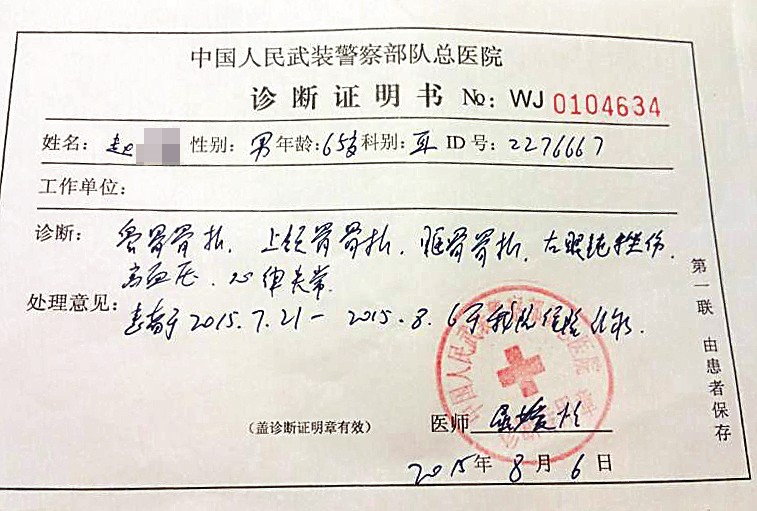 中国人民武装警察部队总医院
诊断证明书 No: WJ 0104634
姓名: 赵 性别: 男 年龄: 65岁 科别: 耳 ID号: 2276667
工作单位:
诊断: 鼻骨骨折. 上颌骨骨折. 眶骨骨折. 左眼钝挫伤.
高血压. 心律失常.
处理意见: 患者于2015.7.21—2015.8.6于我院住院治疗.
第一联 由患者保存
(盖诊断证明章有效) 医师
2015年8月6日
中国人民武装警察部队总医院